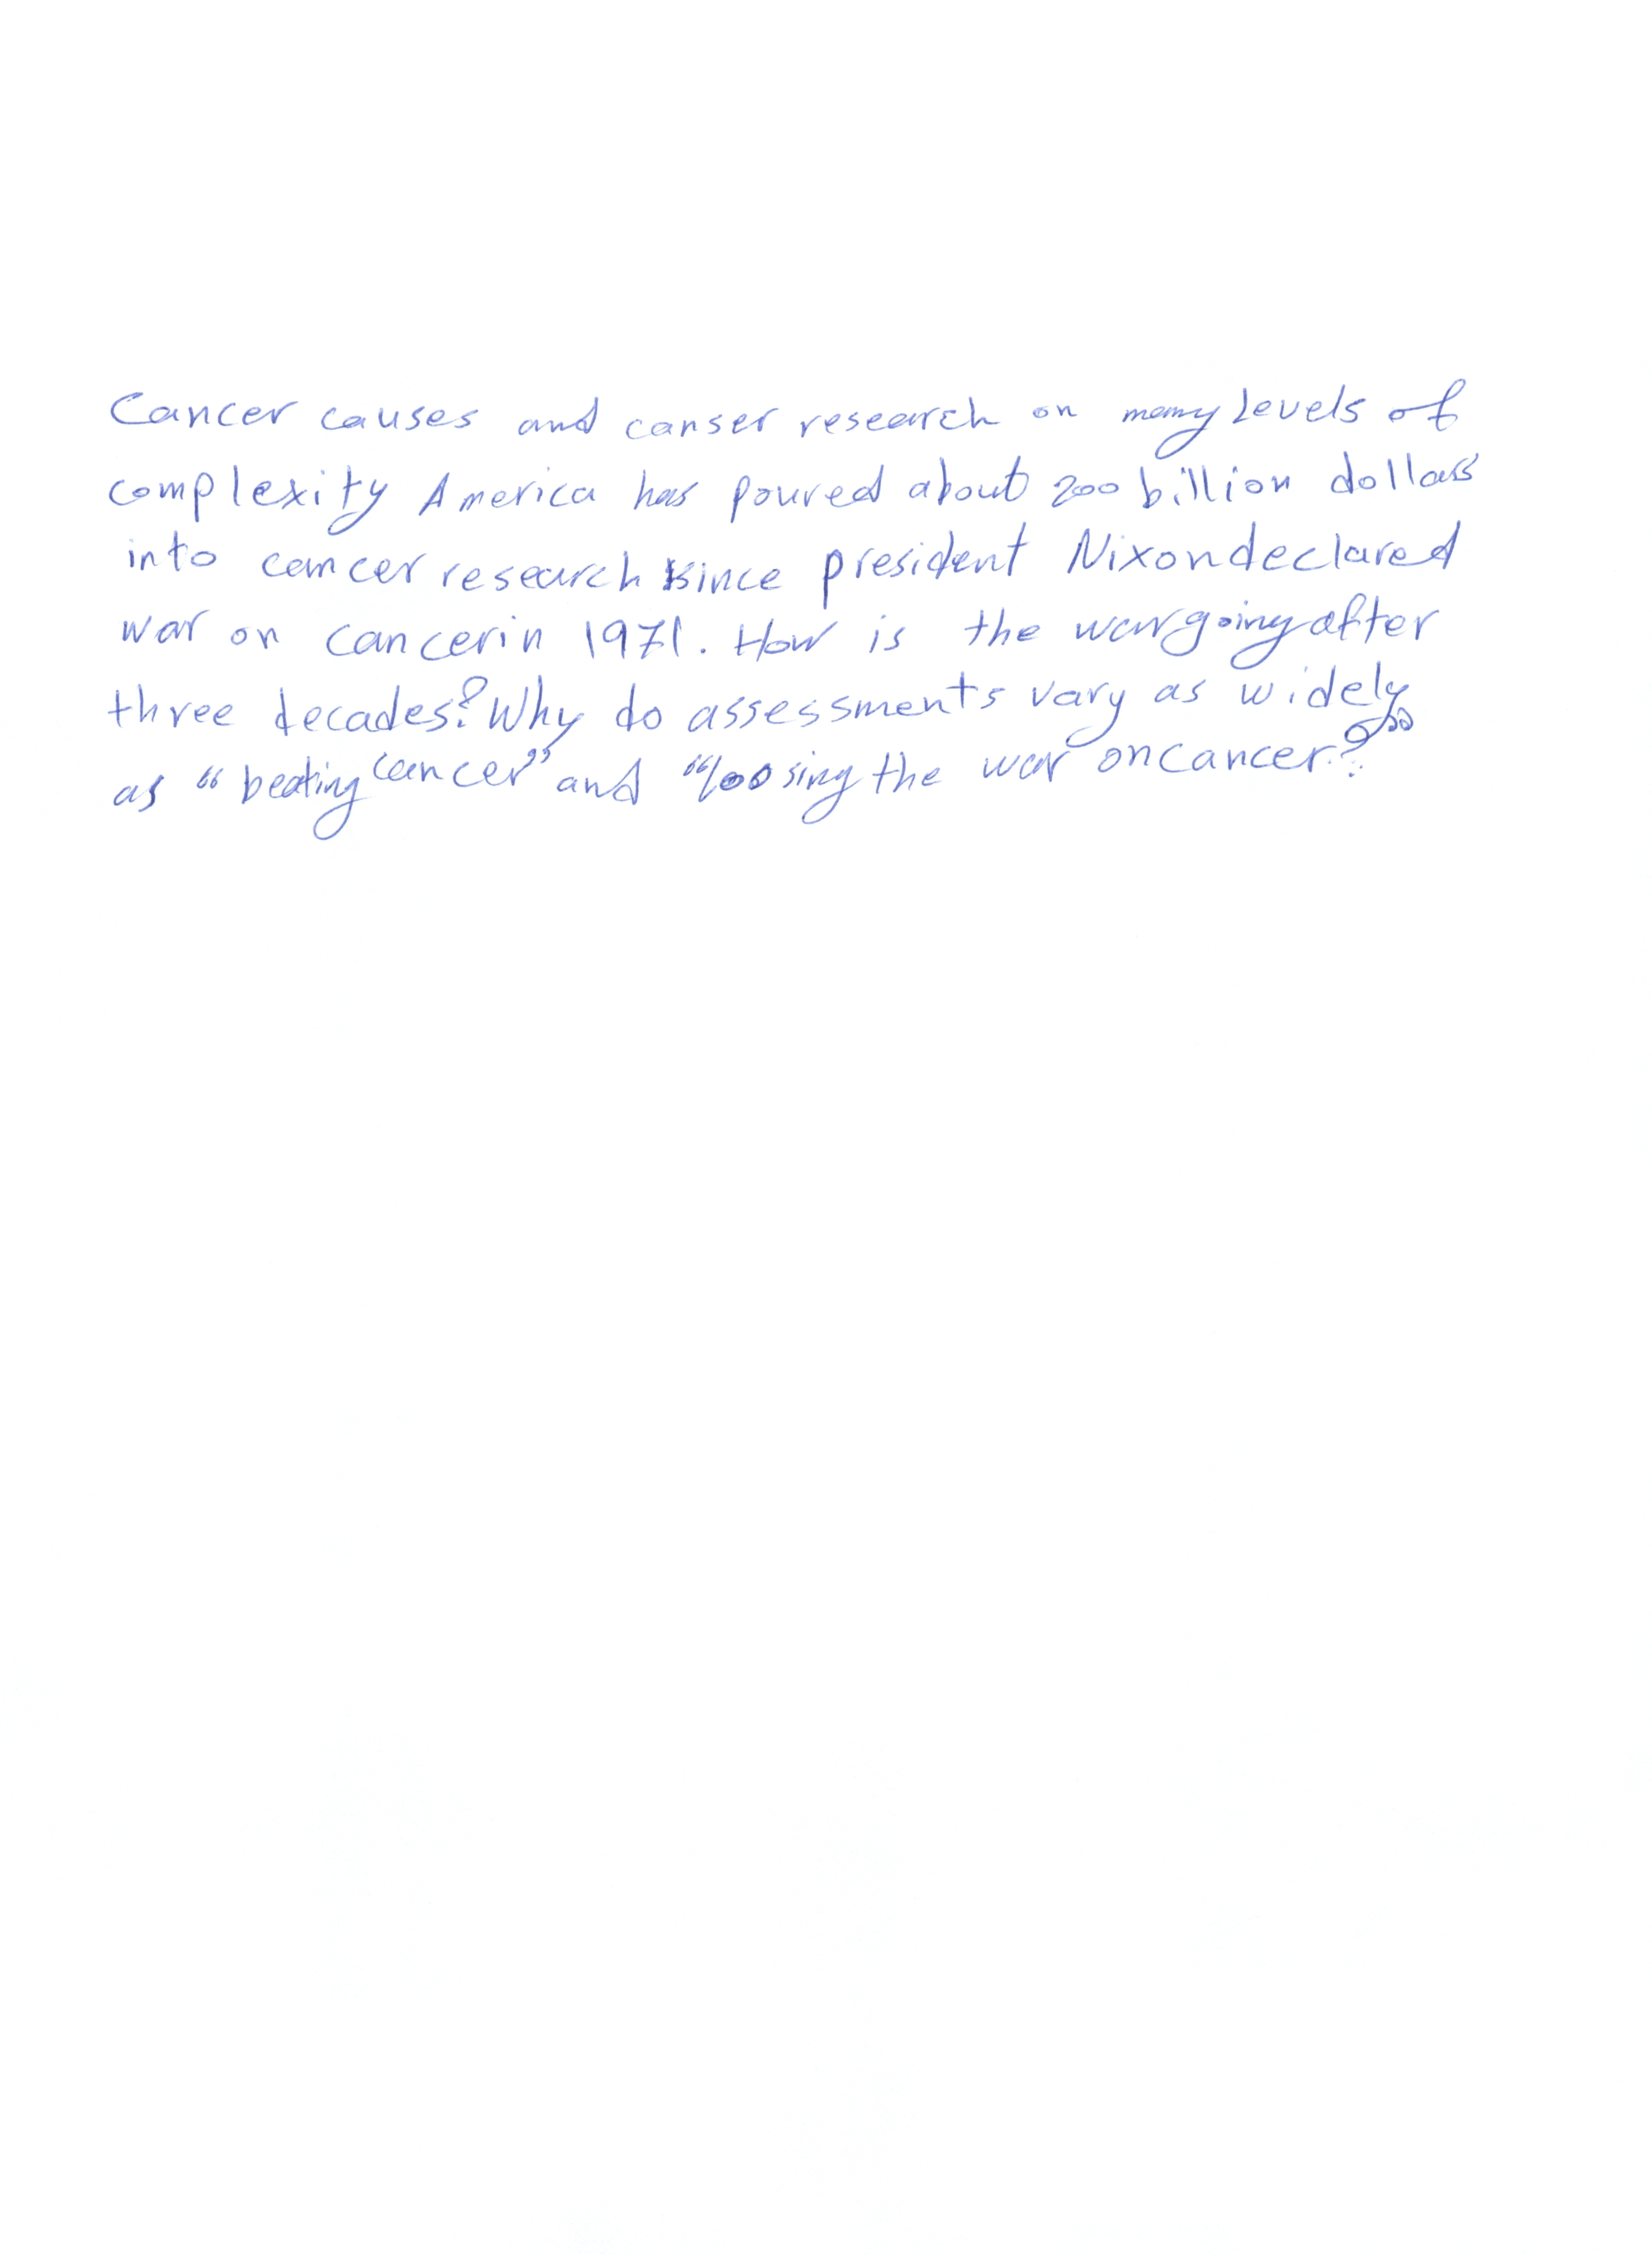 Cancer causes and canser research on many levels of
complexity America has poured about 200 billion dollars
into cancer research since president Nixon declared
war on cancer in 1971. How is the war going after
three decades? Why do assessments vary as widely
as "beating cancer" and "loosing the war on cancer?"